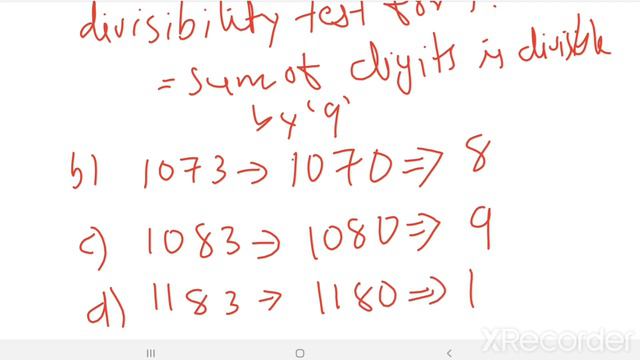 divisibility test for
= sum of digits is divisible
by '9'
b) 1073 → 1070 ⇒ 8
c) 1083 → 1080 ⇒ 9
d) 1183 → 1180 ⇒ 1
XRecorder